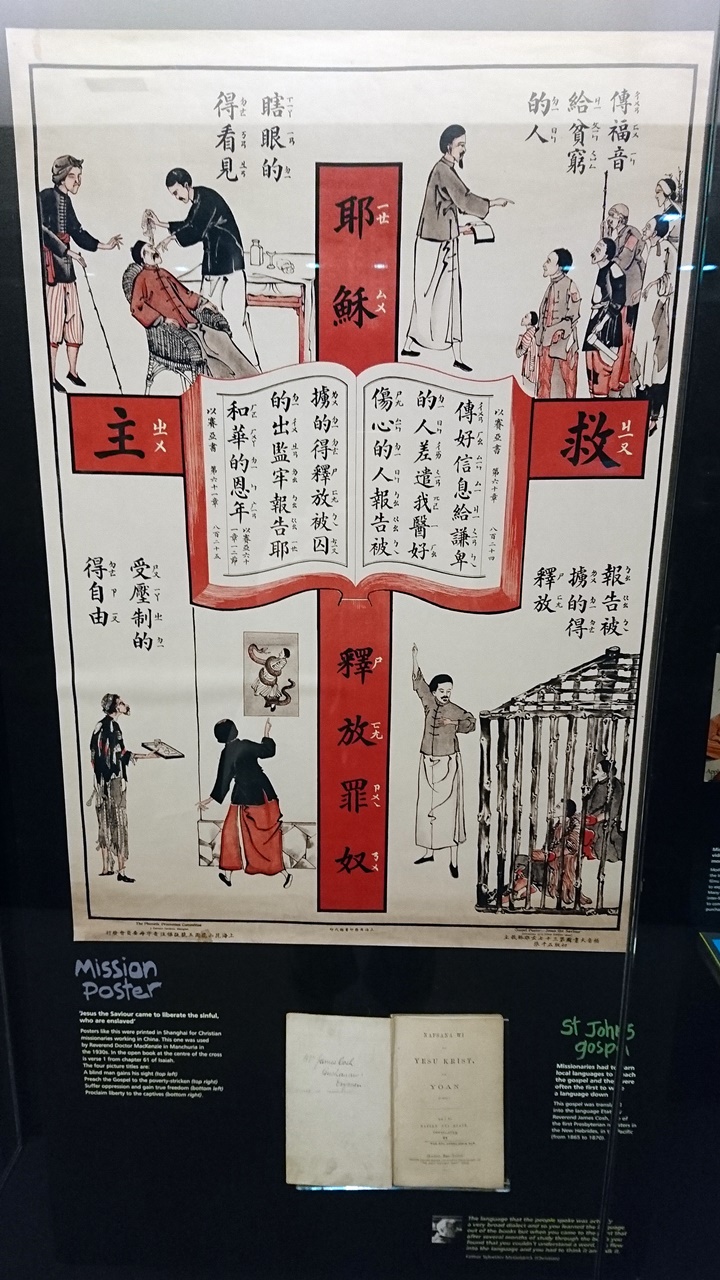 傳福音
給貧窮
的人
瞎眼的
得看見
耶穌
救主
釋放罪奴
以賽亞書 第六十章 八百二十四
傳好信息給謙卑
的人差遣我醫好
傷心的人報告被
擄的得釋放被囚
的出監牢報告耶
和華的恩年
以賽亞六十一章一二節
以賽亞書 第六十一章 八百二十五
報告被
擄的得
釋放
受壓制的
得自由
Mission
Poster
'Jesus the Saviour came to liberate the sinful,
who are enslaved'
Posters like this were printed in Shanghai for Christian
missionaries working in China. This one was
used by Reverend Doctor MacKenzie in Manchuria in
the 1930s. In the open book at the centre of the cross
is verse 1 from chapter 61 of Isaiah.
The four picture titles are:
A blind man gains his sight (top left)
Preach the Gospel to the poverty-stricken (top right)
Suffer oppression and gain true freedom (bottom left)
Proclaim liberty to the captives (bottom right)
NAFSANA WI
YESU KRIST,
YOAN
St John's
gospel
Missionaries had to learn
local languages to teach
the gospel and they were
often the first to write
a language down
This gospel was translated
into the language
Reverend James Cosh,
the first Presbyterian
the New Hebrides, in
(from 1865 to 1870)